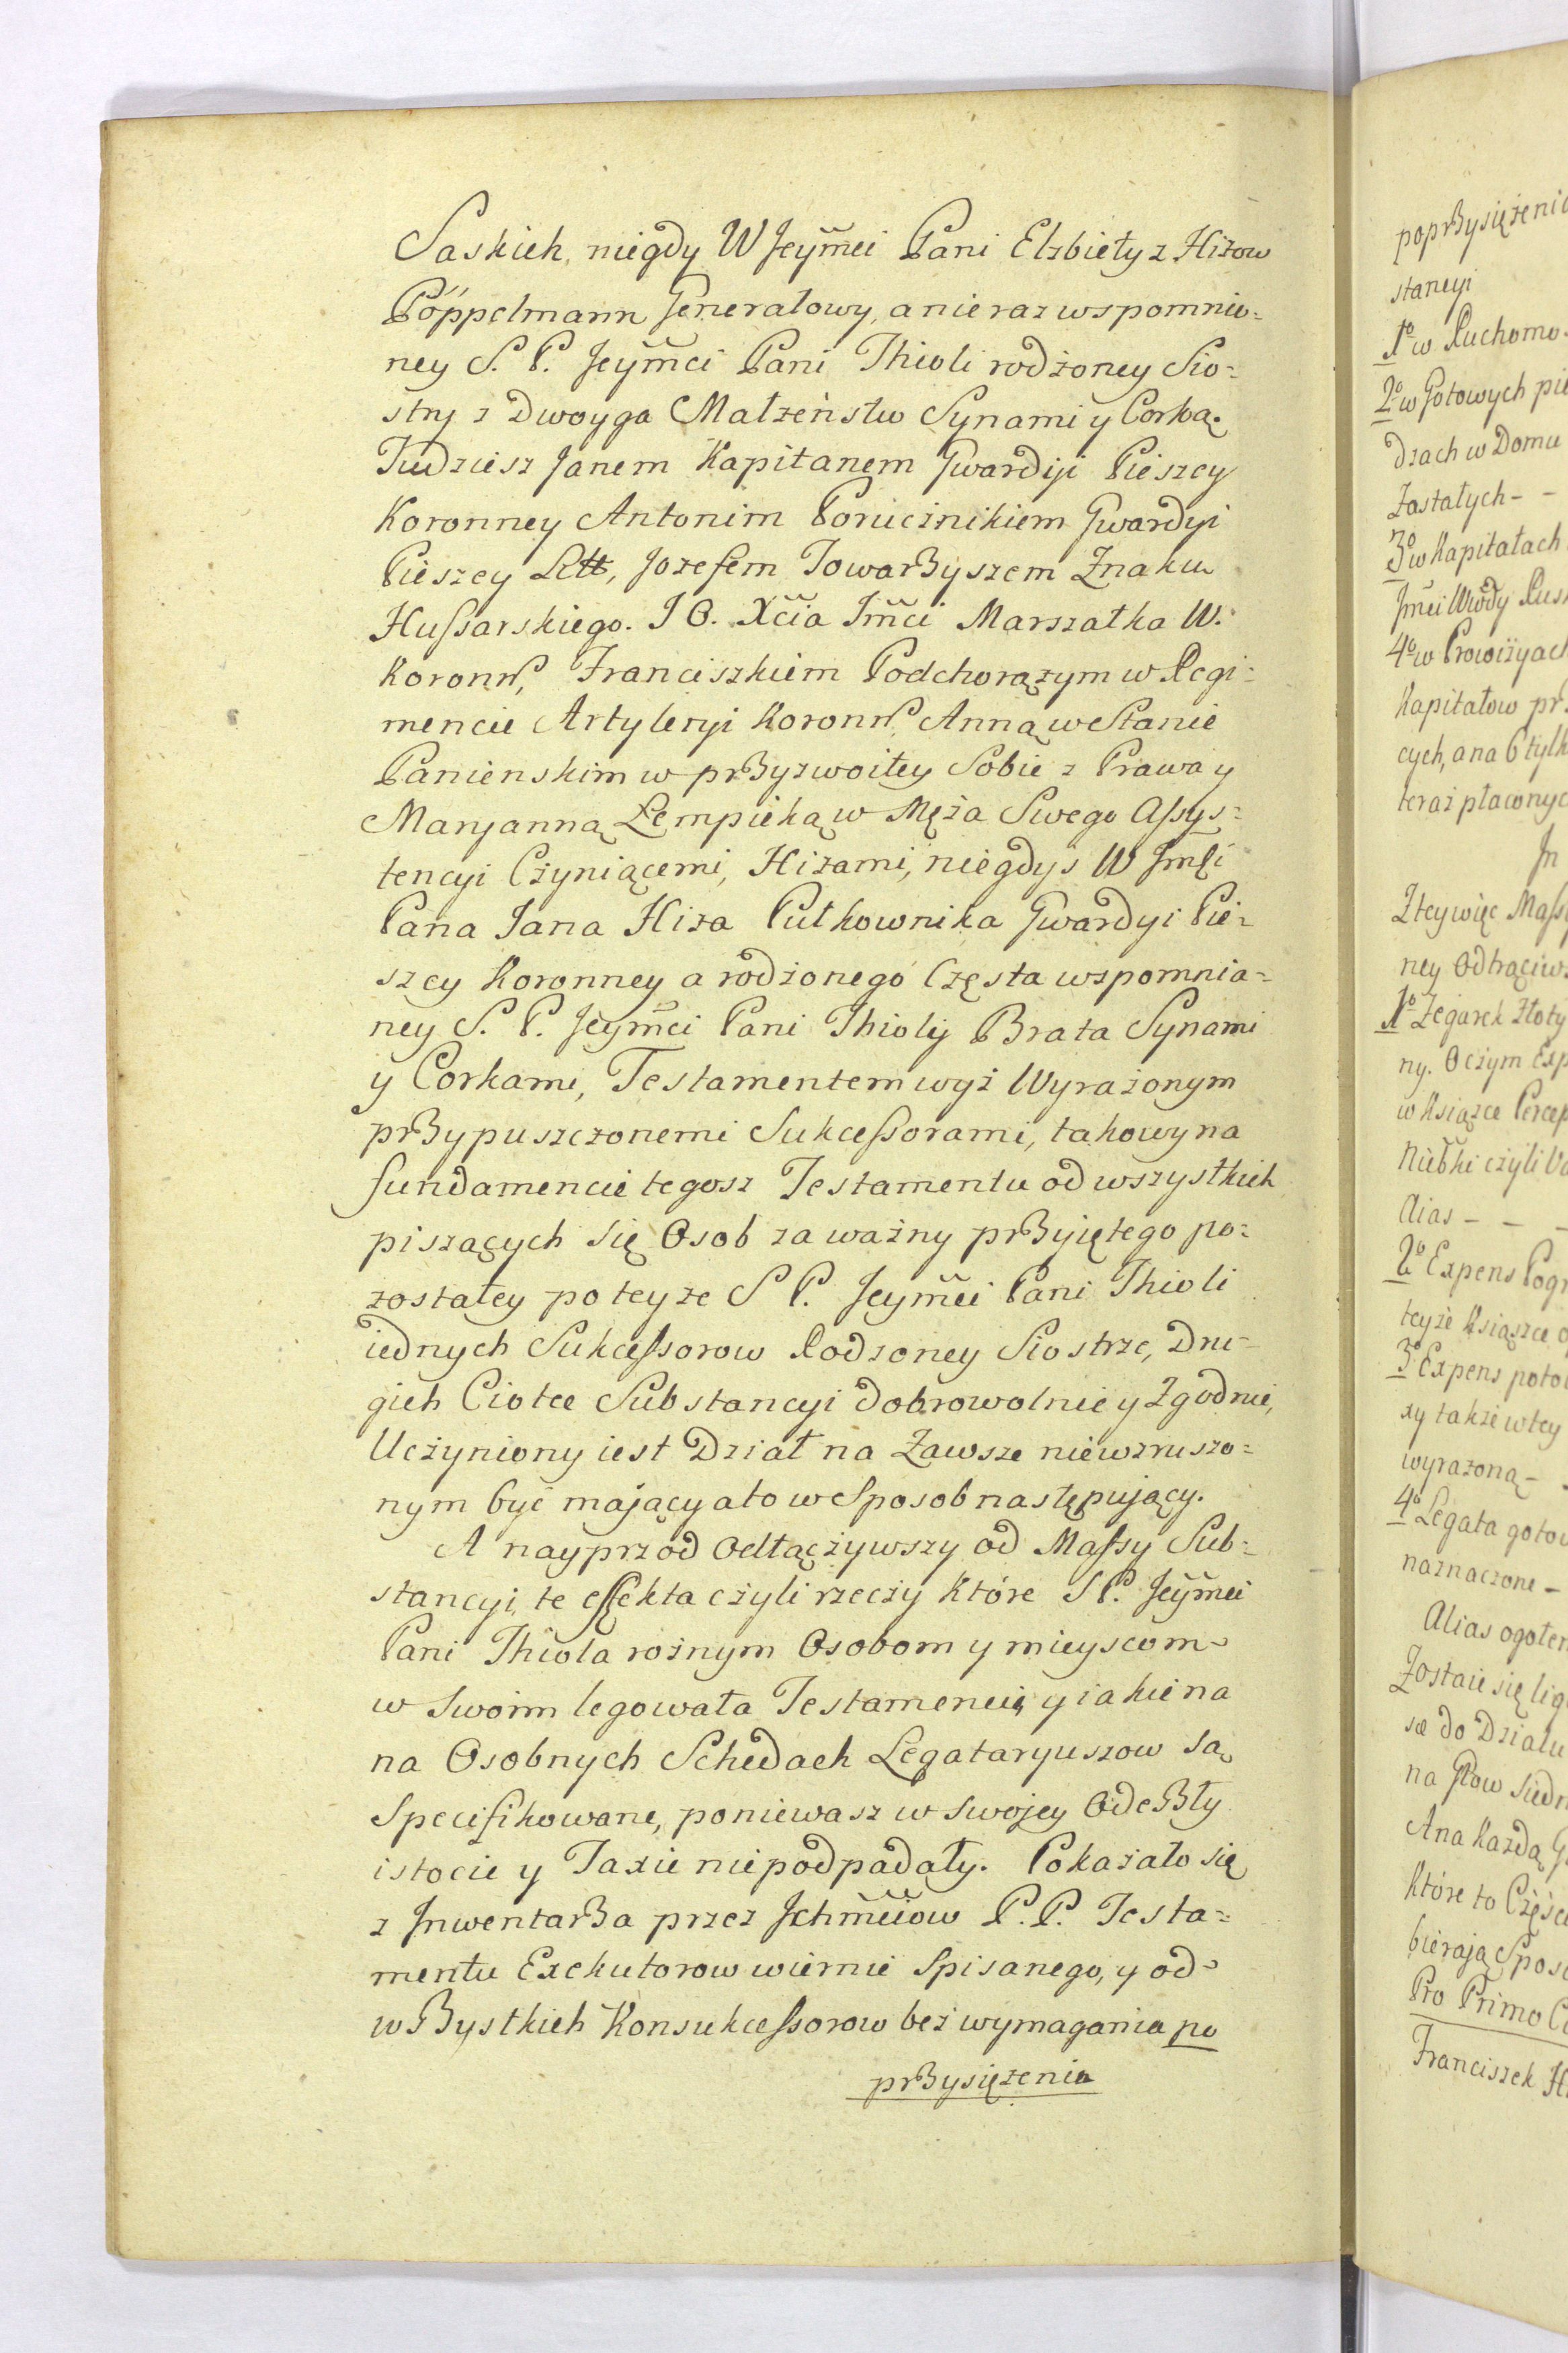 Saskich, niegdy W Jeymci Pani Elzbiety z Hizow
Pöppelmann Generałowy, a nie raz wspomnio=
ney S. P. Jeymci Pani Thioli rodżoney Sio=
stry z Dwoyga Małżeństw Synami y Corką.
Tudziesz Janem Kapitanem Gwardyi Pieszey
Koronney Antonim Porucżnikiem Gwardyi
Pieszey Litt, Jozefem Towarzyszem Znaku
Hussarskiego. J O. Xcia Jmci Marszałka W.
Koronn, Franciszkiem Podchorążym w Regi=
mencie Artyleryi Koronn, Anną w Stanie
Panienskim w przyzwoitey Sobie z Prawa y
Maryanną Łempicką w Męża Swego Assys=
tencyi Cżyniącemi, Hizami, niegdys W Jmci
Pana Jana Hiza Pułkownika Gwardyi Pie=
szey Koronney a rodzonego Często wspomnia=
ney S. P. Jeymci Pani Thioly Brata Synami
y Corkami, Testamentem wyż Wyrażonym
przypuszczonemi Sukcessorami, takowy na
fundamencie tegosz Testamentu od wszystkich
piszących się Osob za ważny przyiętego po=
zostałey po teyże S P. Jeymci Pani Thioli
iednych Sukcessorow Rodzoney Siostrze, Dru=
gich Ciotce Substancyi dobrowolnie y Zgodnie,
Ucżyniony iest Dział na Zawsze niewzruszo=
nym być mający a to w Sposob następujący.
A nayprzod Odłącżywszy od Massy Sub=
stancyi, te effekta cżyli rzecży które S P. Jeymci
Pani Thiola rożnym Osobom y mieyscom
w Swoim legowała Testamencie, y iakie na
na Osobnych Schedach Legataryuszow są
Specifikowane, poniewasz w Swojey Odeszły
istocie y Taxie nie podpadały. Pokazało się
z Inwentarza przez Ichmciow P. P. Testa=
mentu Exekutorow wiernie Spisanego, y od
wszystkich Konsukcessorow beż wymagania po
przysiężenia
poprzysiężenia
stancyi
1º w Ruchomo
2º w Gotowych pie
dzach w Domu
Zostałych - -
3º w Kapitałach
Jmci Wwody Rus
4º w Prowizyach
Kapitałow prz
cych, a na 6 tylk
teraż płaconyc
In
Z tey więc Mass
ney Odtrąciws
1º Zegarek Złoty
ny. O czym Exp
w Książce Percep
alias - - -
2º Expens Pogr
teyże Książce
3º Expens poto
xy także w tey
wyrażoną -
4º Legata goto
naznaczone -
Alias ogołem
Zostaie się liq
sæ do Działu
na Głow Siedm
A na Każdą G
Które to Częśc
bierają Spos
Pro Primo
Franciszek H